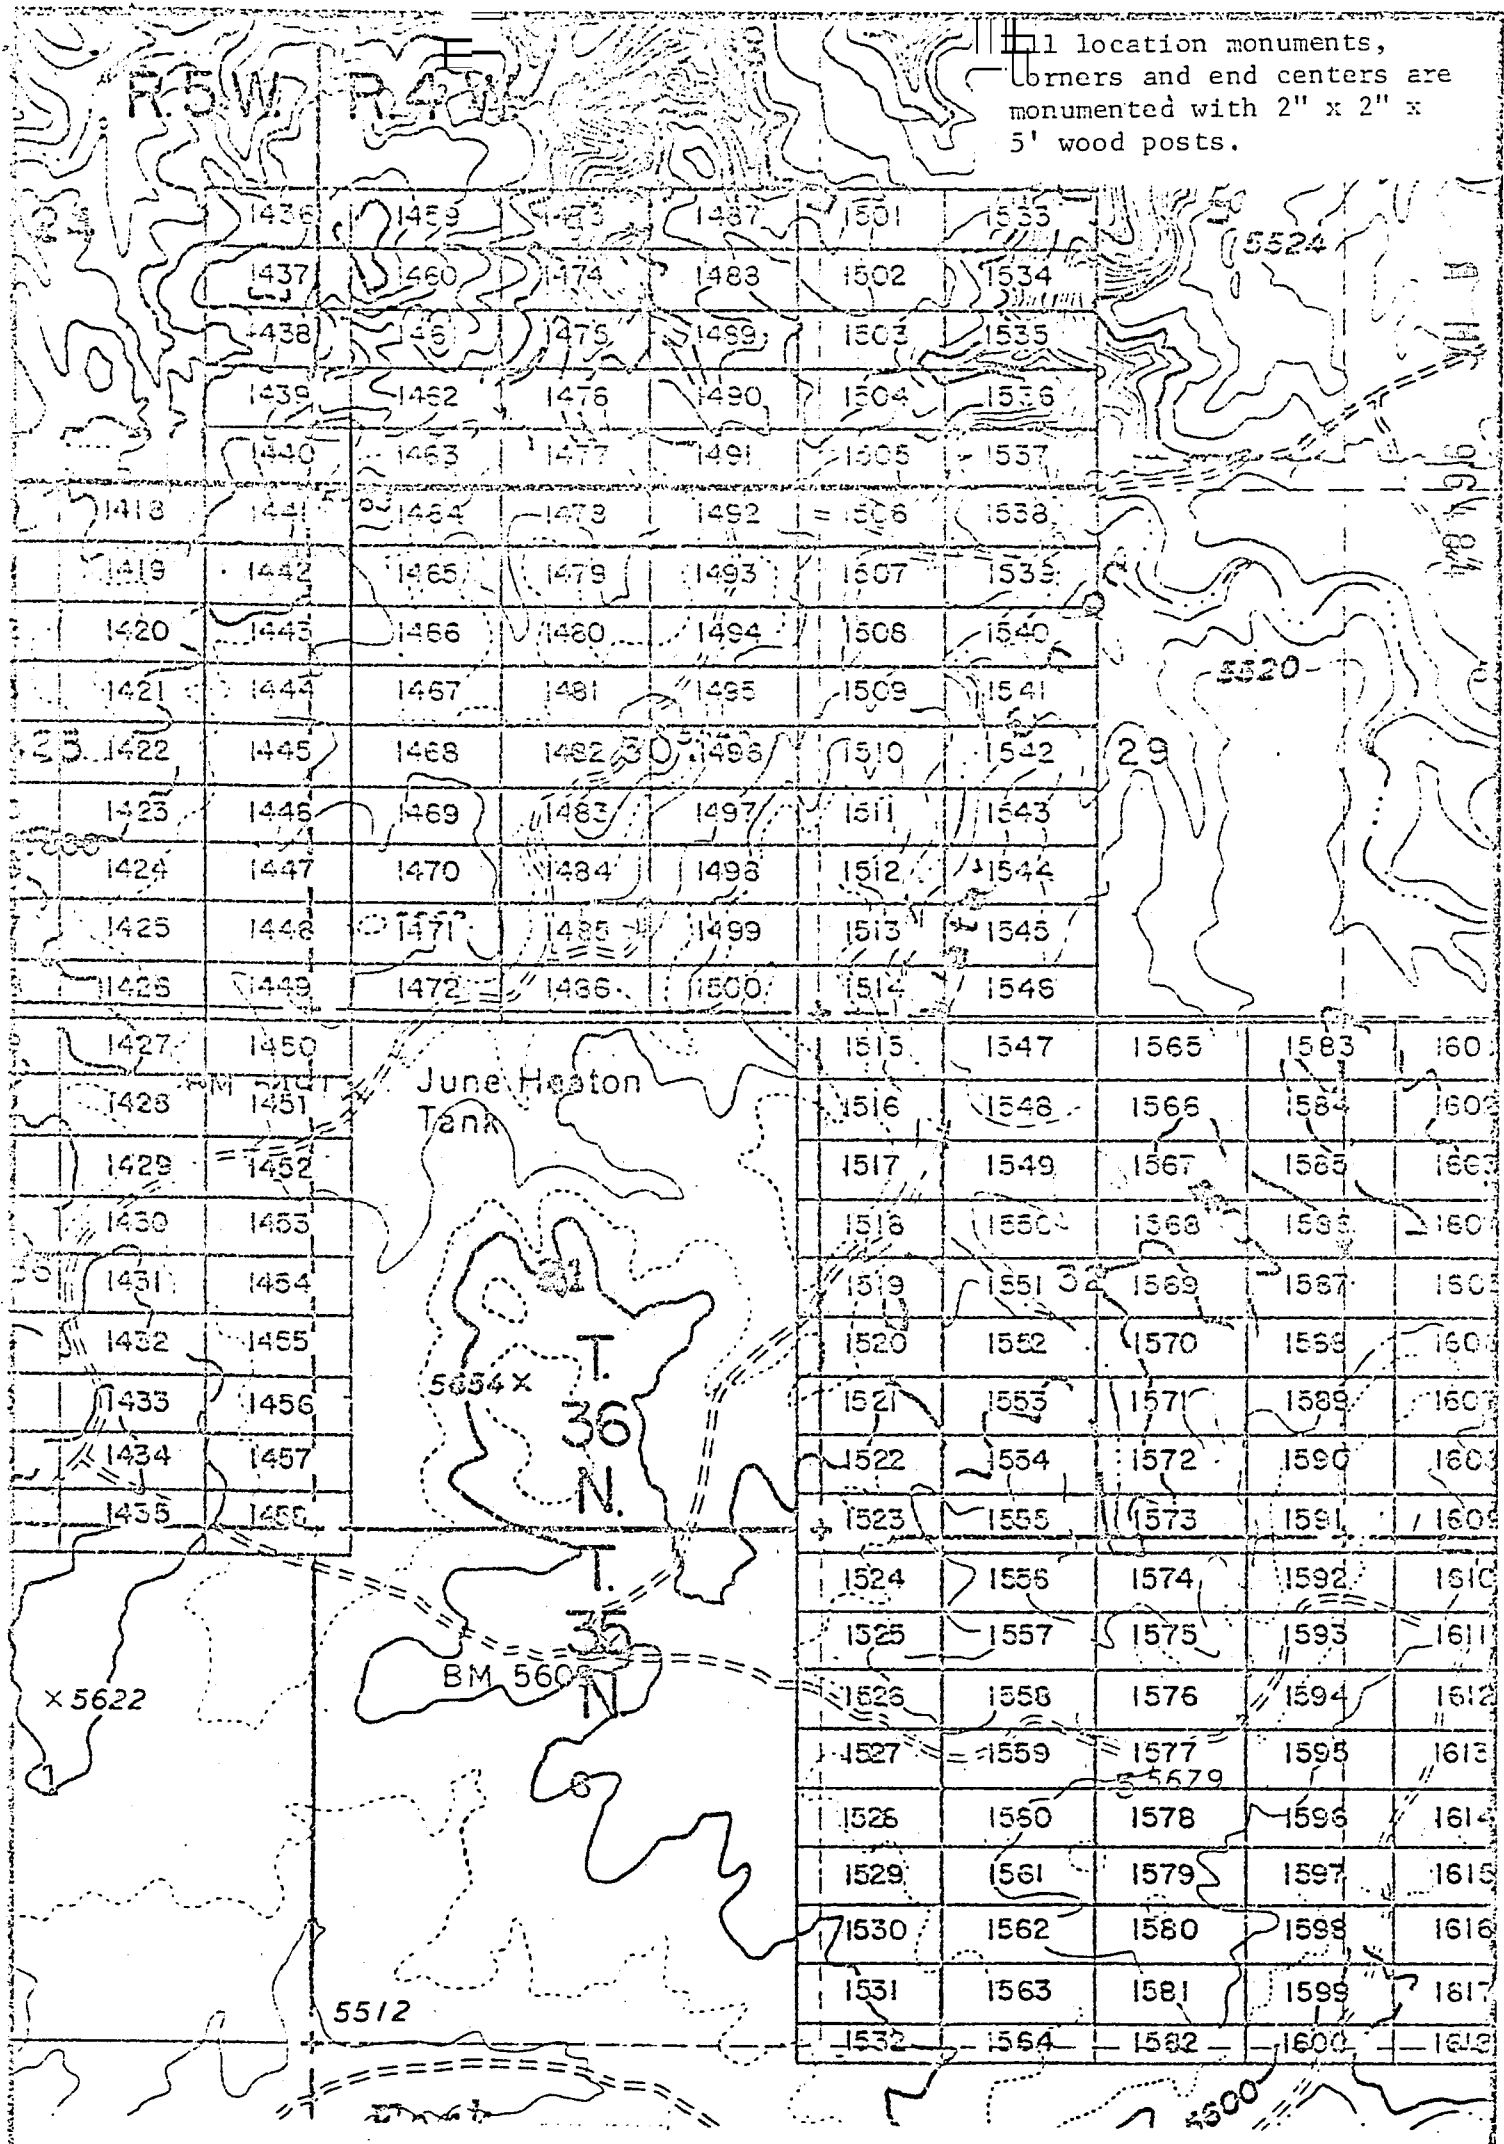 11 location monuments,
corners and end centers are
monumented with 2" x 2" x
5' wood posts.
R.5W. R.4W.
1436 1459 1473 1487 1501 1533
5524
1437 1460 1474 1488 1502 1534
1438 1461 1475 1489 1503 1535
1439 1462 1476 1490 1504 1536
1440 1463 1477 1491 1505 1537
1418 1441 1464 1478 1492 1506 1538
1419 1442 1465 1479 1493 1507 1539
1420 1443 1466 1480 1494 1508 1540
5520
1421 1444 1467 1481 1495 1509 1541
1422 1445 1468 1482 30 1496 1510 1542 29
1423 1446 1469 1483 1497 1511 1543
1424 1447 1470 1484 1498 1512 1544
1425 1448 1471 1485 1499 1513 1545
1426 1449 1472 1486 1500 1514 1546
1427 1450 1515 1547 1565 1583
June Heaton
Tank
1428 1451 1516 1548 1566 1584
1429 1452 1517 1549 1567 1585
1430 1453 1518 1550 1568 1586
1431 1454 31 1519 1551 32 1569 1587
1432 1455 T. 1520 1552 1570 1588
5654 X
1433 1456 36 1521 1553 1571 1589
1434 1457 N. 1522 1554 1572 1590
1435 1458 1523 1555 1573 1591
T. 1524 1556 1574 1592 1610
35 1525 1557 1575 1593 1611
BM 560
N
X 5622 1526 1558 1576 1594 1612
1527 1559 1577 1595 1613
1 6 5 5679
1528 1560 1578 1596 1614
1529 1561 1579 1597 1615
1530 1562 1580 1598 1616
1531 1563 1581 1599 1617
5512
1532 1564 1582 1600 1618
5500